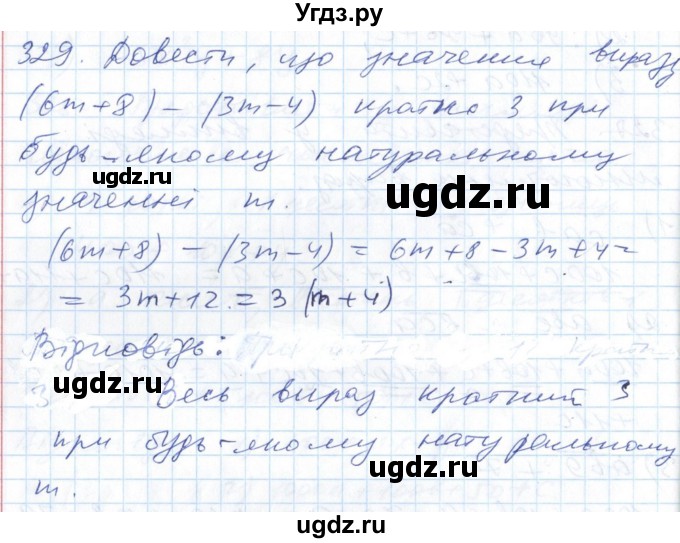 Угдз.ру
329. Довести, що значення виразу
(6m+8) - (3m-4) кратне 3 при
будь-якому натуральному
ugdz.ru ugdz.ru
значенні m.
(6m+8) - (3m-4) = 6m+8-3m+4=
= 3m+12 = 3 (m+4)
ugdz.ru
Відповідь:
ugdz.ru ugdz.ru
3 Весь вираз кратний 3
при будь-якому натуральному
ugdz.ru
m.
ugdz.ru